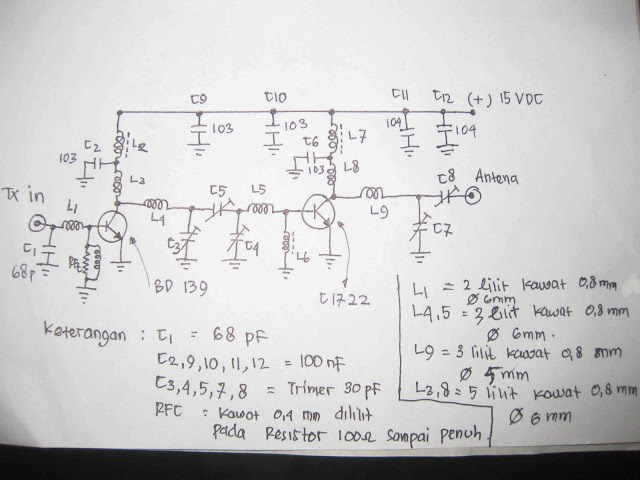 C9
C10
C11
C12
(+) 15 VDC
103
103
104
104
C2
103
L2
L3
C6
103
L7
L8
C8
Antena
Tx in
L1
L4
C5
L5
L9
C1
68p
RFC
C3
C4
L6
C7
BD 139
C1722
Keterangan : C1 = 68 pF
C2,9,10,11,12 = 100 nF
C3,4,5,7,8 = Trimer 30 pF
RFC = kawat 0,4 mm dililit
pada Resistor 100Ω sampai penuh
L1 = 2 lilit kawat 0,8 mm
Ø 6mm
L4,5 = 3 lilit kawat 0,8 mm
Ø 6mm.
L9 = 3 lilit kawat 0,8 mm
Ø 5 mm
L3,8 = 5 lilit kawat 0,8 mm
Ø 6 mm